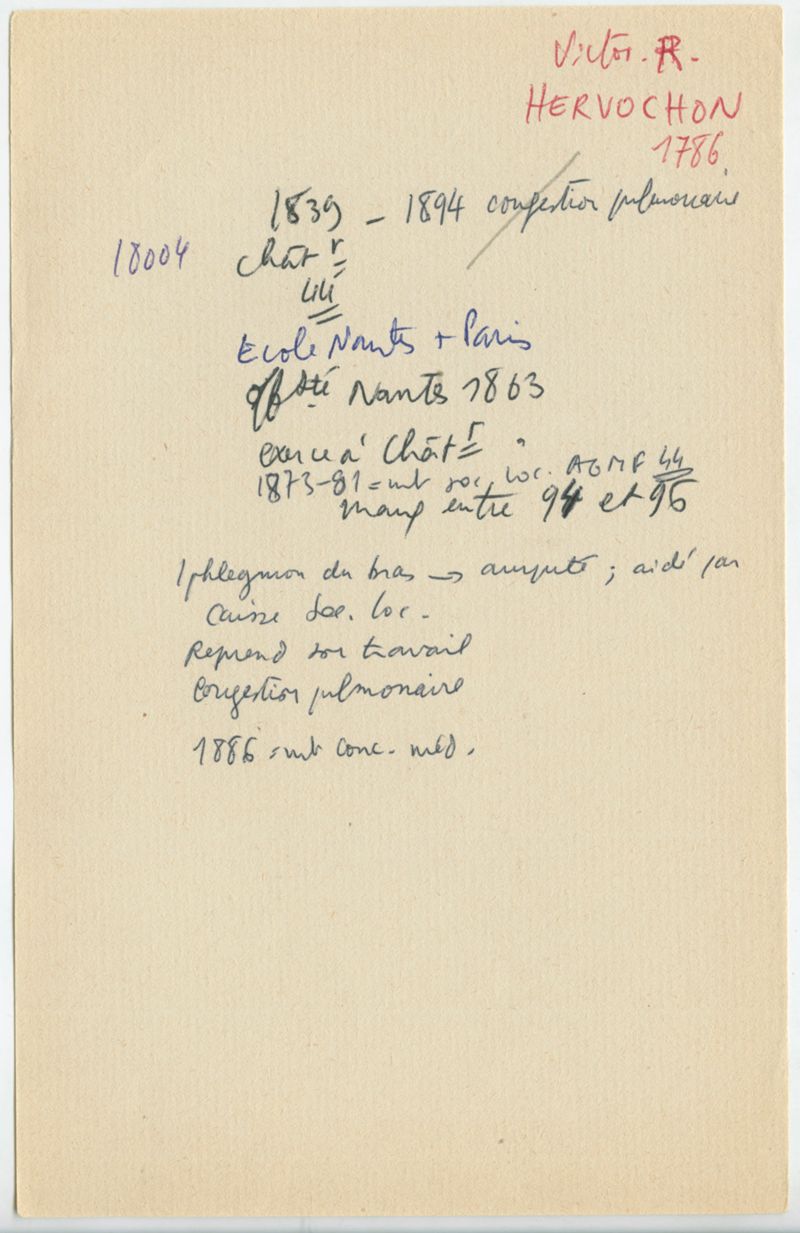 Victor. R.
HERVOCHON
1786
1839 - 1894 congestion pulmonaire
18004 Chât r
44
Ecole Nantes + Paris
off Sté Nantes 1863
exerce à Chât r
1873-81 = mb soc. loc. AGMF 44
manq entre 94 et 96
1 phlegmon du bras → amputé ; aidé par
caisse Soc. loc.
Reprend son travail
Congestion pulmonaire
1886 = mb conc. méd.